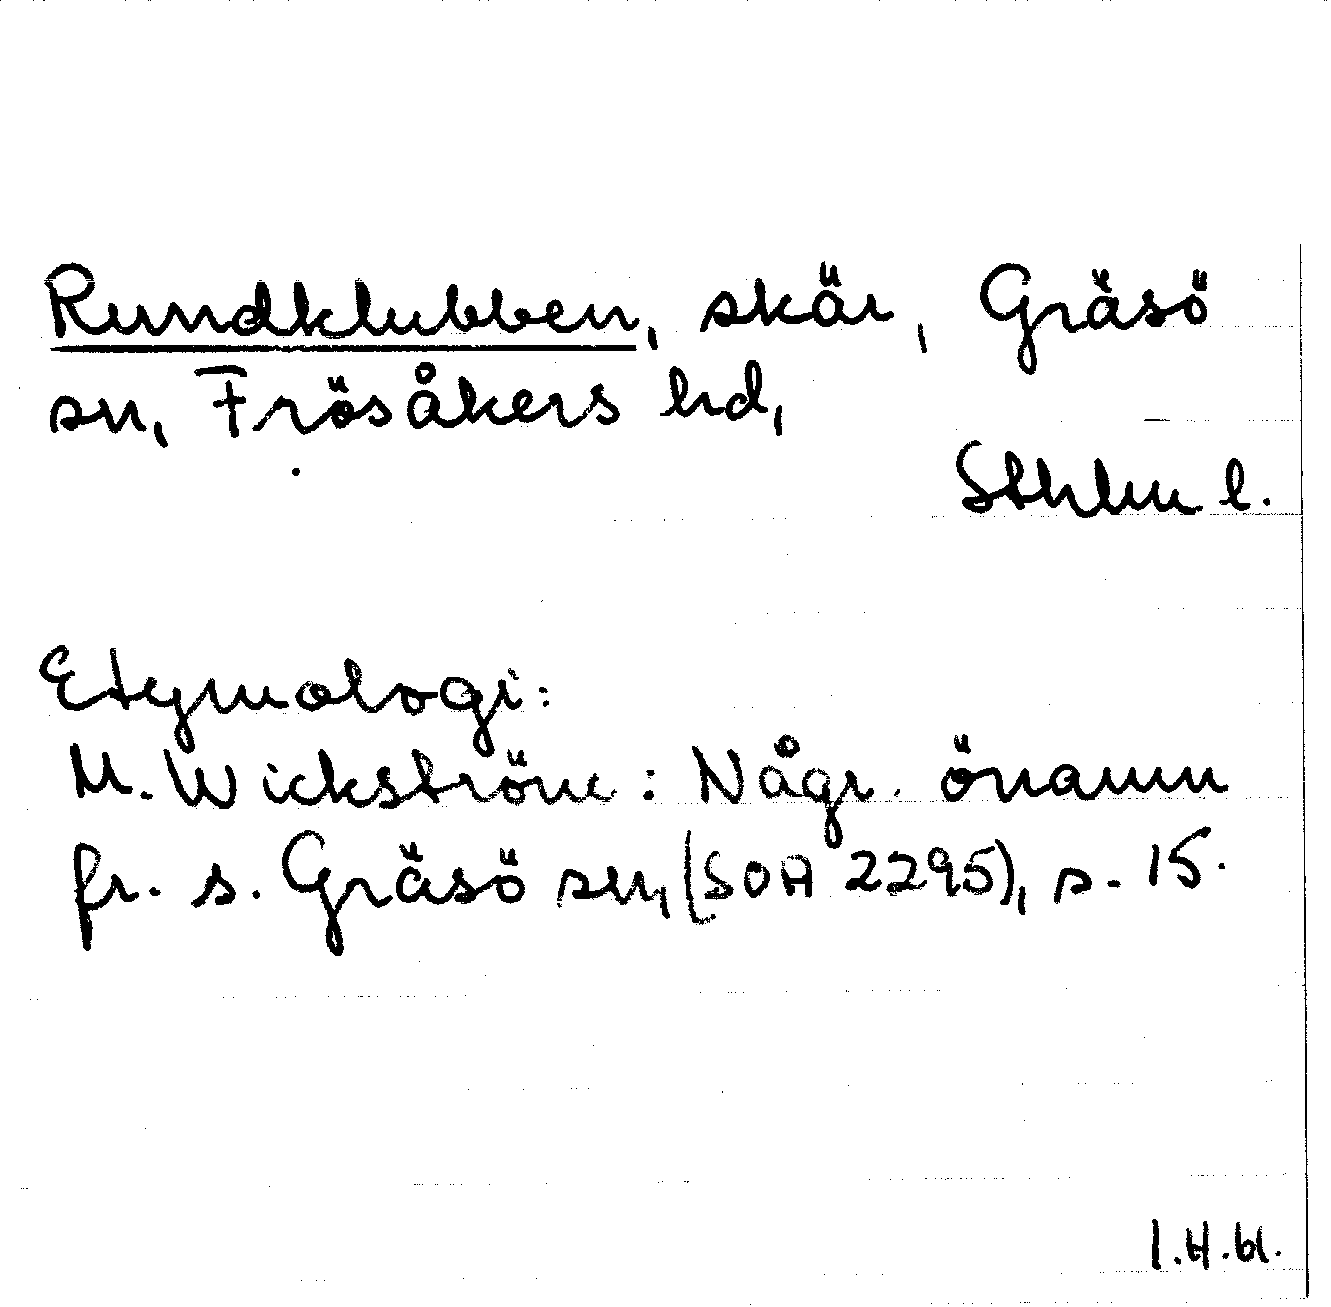 Rundklubben, skär, Gräsö
sn, Frösåkers hd,
Sthlm l.
Etymologi:
M. Wickström: Någr. önamn
fr. s. Gräsö sn, (SOA 2295), s. 15.
I.H.61.